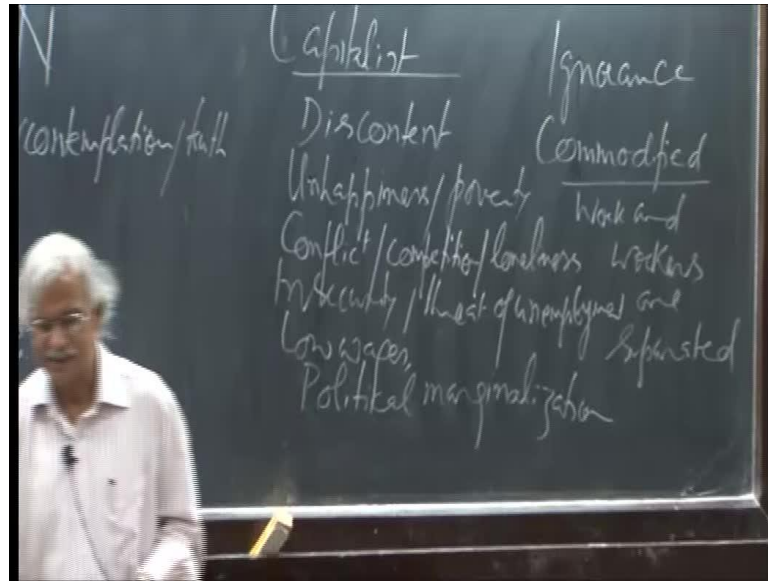 N
contemplation/truth
Capitalist
Discontent
Unhappiness/poverty
Conflict/competition/loneliness
Insecurity/threat of unemployment
Low wages,
Political marginalization
Ignorance
Commodified
Work and
workers
are
separated